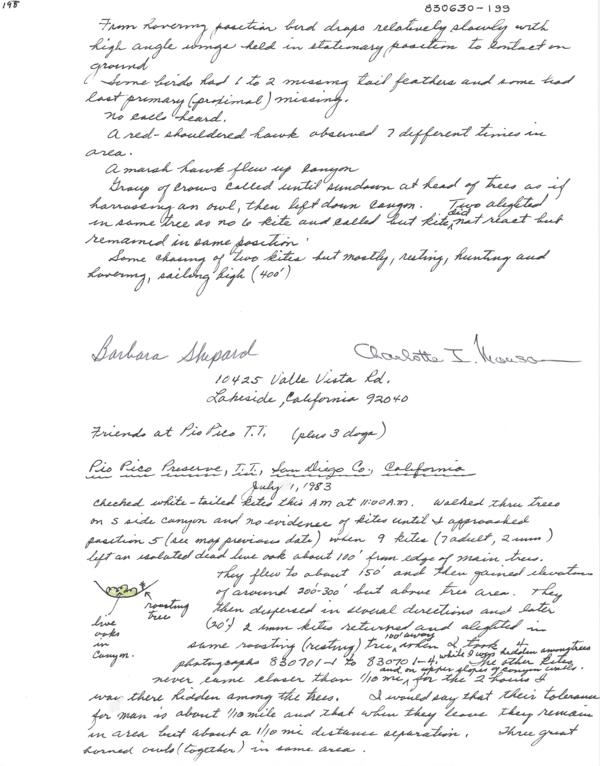 198
830630-199
From hovering position bird drops relatively slowly with
high angle wings held in stationary position to contact on
ground
Some birds had 1 to 2 missing tail feathers and some had
last primary (proximal) missing.
No calls heard.
A red-shouldered hawk observed 7 different times in
area.
A marsh hawk flew up canyon
Group of crows called until sundown at head of trees as if
harrassing an owl, then left down canyon. Two alighted
in same tree as no 6 kite and called but kite did not react but
remained in same position.
Some chasing of two kites but mostly, resting, hunting and
hovering, sailing high (400')
Barbara Shepard Charlotte I.
10425 Valle Vista Rd.
Lakeside, California 92040
Friends at Pio Pico T.T. (plus 3 dogs)
Pio Pico Preserve, T.T., San Diego Co., California
July 1, 1983
Checked white-tailed kites this AM at 11:00 A.M. Walked thru trees
on S side canyon and no evidence of kites until I approached
position 5 (see map previous date) when 9 kites (7 adult, 2 imm)
left an isolated dead live oak about 100' from edge of main trees.
They flew to about 150' and then gained elevation
of around 200-300' but above tree area. They
then dispersed in several directions and later
(20') 2 imm kites returned and alighted in
same roosting (resting) tree, 100' away when I took 4
photographs 830701-1 to 830701-4, while I was hidden among trees
The other kites
and on upper slopes of canyon walls.
never came closer than 1/10 mi, for the 2 hours I
was there hidden among the trees. I would say that their tolerance
for man is about 1/10 mile and that when they leave they remain
in area but about a 1/10 mi distance separation. Three great
horned owls (together) in same area.
roosting
tree
live
oaks
in
canyon.